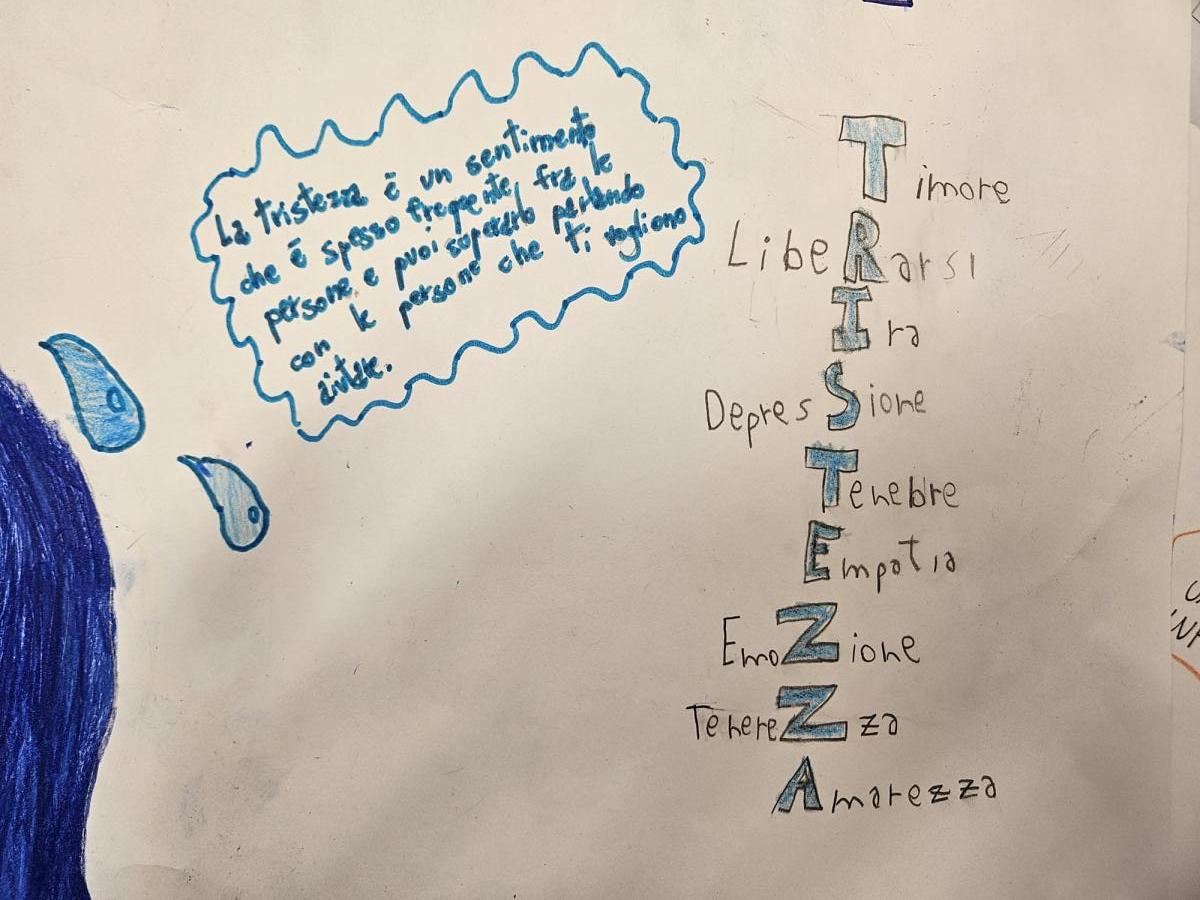 La tristezza è un sentimento
che è spesso frequente, fra le
persone e puoi superarlo parlando
con le persone che ti vogliono
aiutare.
Timore
LibeRarsi
Ira
DepresSione
Tenebre
Empatia
EmoZione
TenereZza
Amarezza